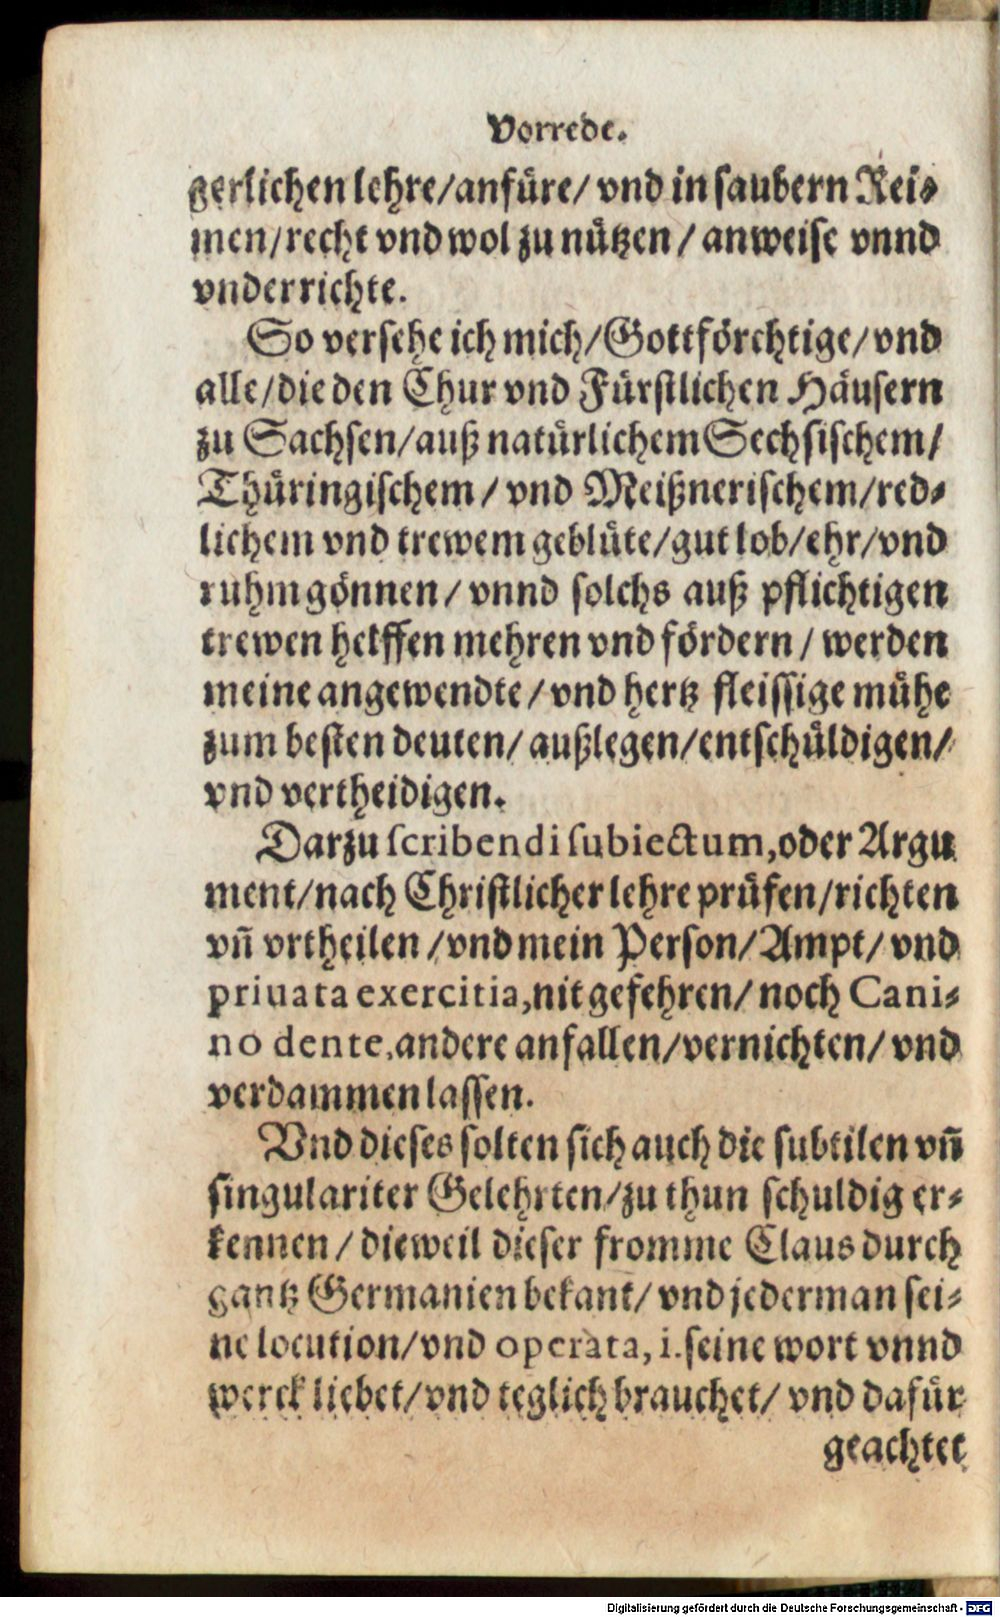 Vorrede.
gerlichen lehre/anfüre/ vnd in saubern Rei⸗
men/recht vnd wol zu nützen/ anweise vnnd
vnderrichte.
So versehe ich mich/Gottförchtige/vnd
alle/die den Chur vnd Fürstlichen Häusern
zu Sachsen/auß natürlichem Sechsischem/
Thüringischem/ vnd Meißnerischem/red⸗
lichem vnd trewem geblüte/gut lob/ehr/vnd
ruhm gönnen/ vnnd solchs auß pflichtigen
trewen helffen mehren vnd fördern/ werden
meine angewendte/vnd hertz fleissige mühe
zum besten deuten/außlegen/entschüldigen/
vnd vertheidigen.
Darzu scribendi subiectum,oder Argu
ment/nach Christlicher lehre prüfen/richten
vñ vrtheilen/vnd mein Person/Ampt/ vnd
priuata exercitia,nit gefehren/ noch Cani⸗
no dente,andere anfallen/vernichten/ vnd
verdammen lassen.
Vnd dieses solten sich auch die subtilen vñ
singulariter Gelehrten/zu thun schuldig er⸗
kennen/ dieweil dieser fromme Claus durch
gantz Germanien bekant/ vnd jederman sei⸗
ne locution/vnd operata, i.seine wort vnnd
werck liebet/vnd teglich brauchet/ vnd dafür
geachtet
Digitalisierung gefördert durch die Deutsche Forschungsgemeinschaft - DFG